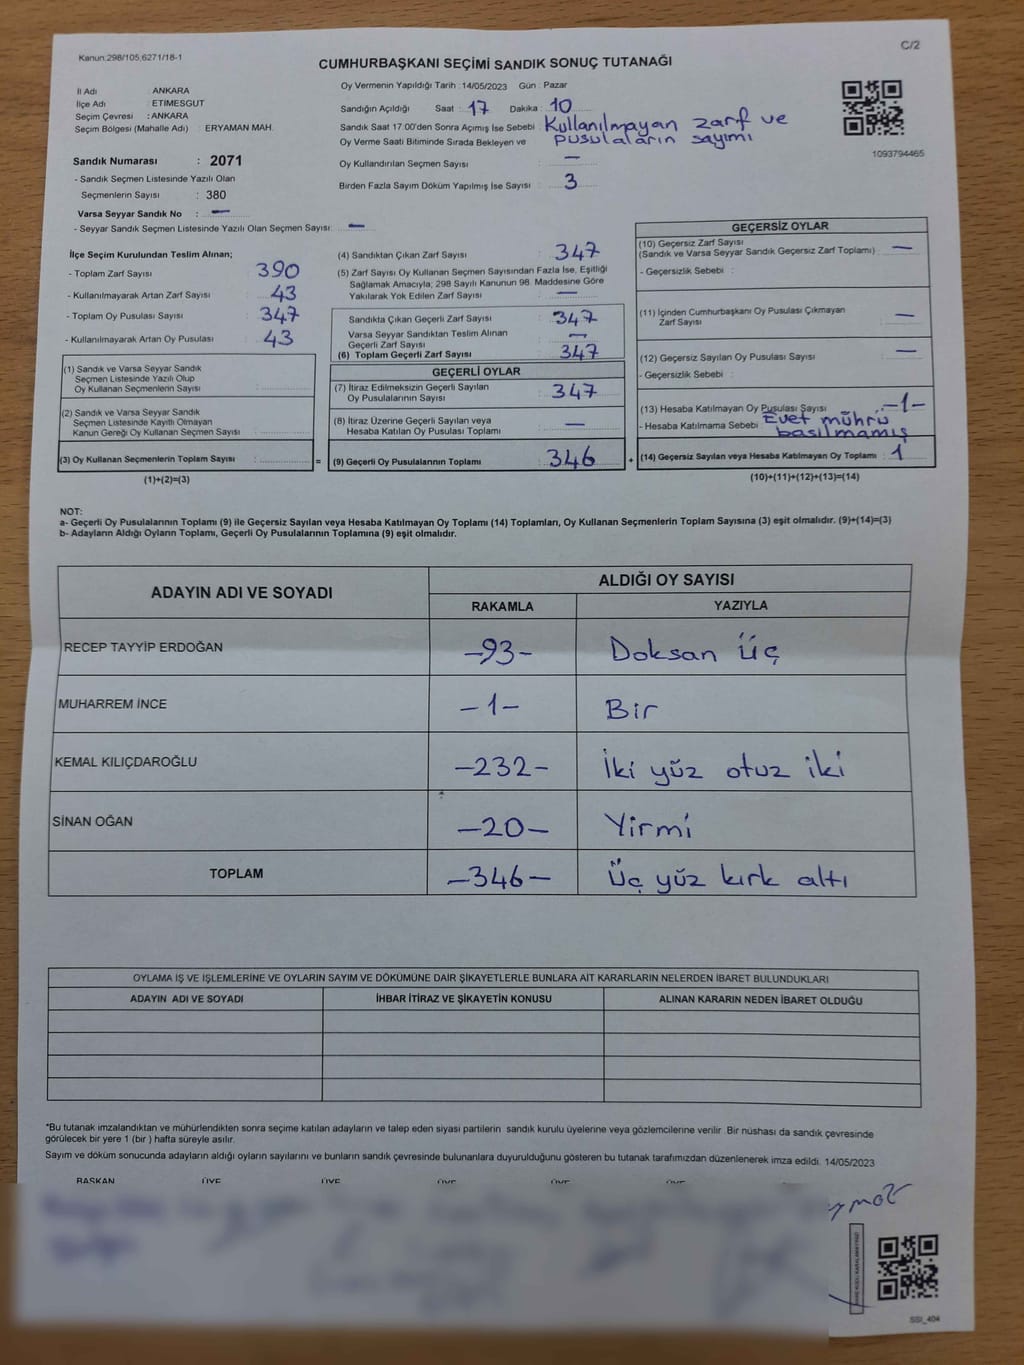 Kanun:298/105,6271/18-1
C/2
CUMHURBAŞKANI SEÇİMİ SANDIK SONUÇ TUTANAĞI
Oy Vermenin Yapıldığı Tarih : 14/05/2023 Gün : Pazar
İl Adı : ANKARA
İlçe Adı : ETİMESGUT
Seçim Çevresi : ANKARA
Seçim Bölgesi (Mahalle Adı) : ERYAMAN MAH.
Sandığın Açıldığı Saat : 17 Dakika : 10
Sandık Saat 17:00'den Sonra Açımış İse Sebebi : Kullanılmayan zarf ve
pusulaların sayımı
Oy Verme Saati Bitiminde Sırada Bekleyen ve
Oy Kullandırılan Seçmen Sayısı : —
Birden Fazla Sayım Döküm Yapılmış İse Sayısı : 3
1093794465
Sandık Numarası : 2071
- Sandık Seçmen Listesinde Yazılı Olan
Seçmenlerin Sayısı : 380
Varsa Seyyar Sandık No : —
- Seyyar Sandık Seçmen Listesinde Yazılı Olan Seçmen Sayısı: —
İlçe Seçim Kurulundan Teslim Alınan;
- Toplam Zarf Sayısı : 390
- Kullanılmayarak Artan Zarf Sayısı : 43
- Toplam Oy Pusulası Sayısı : 347
- Kullanılmayarak Artan Oy Pusulası : 43
(1) Sandık ve Varsa Seyyar Sandık
Seçmen Listesinde Yazılı Olup
Oy Kullanan Seçmenlerin Sayısı :
(2) Sandık ve Varsa Seyyar Sandık
Seçmen Listesinde Kayıtlı Olmayan
Kanun Gereği Oy Kullanan Seçmen Sayısı :
(3) Oy Kullanan Seçmenlerin Toplam Sayısı : =
(1)+(2)=(3)
(4) Sandıktan Çıkan Zarf Sayısı : 347
(5) Zarf Sayısı Oy Kullanan Seçmen Sayısından Fazla İse, Eşitliği
Sağlamak Amacıyla; 298 Sayılı Kanunun 98. Maddesine Göre
Yakılarak Yok Edilen Zarf Sayısı : —
Sandıkta Çıkan Geçerli Zarf Sayısı : 347
Varsa Seyyar Sandıktan Teslim Alınan
Geçerli Zarf Sayısı : —
(6) Toplam Geçerli Zarf Sayısı : 347
GEÇERLİ OYLAR
(7) İtiraz Edilmeksizin Geçerli Sayılan
Oy Pusulalarının Sayısı : 347
(8) İtiraz Üzerine Geçerli Sayılan veya
Hesaba Katılan Oy Pusulası Toplamı : —
(9) Geçerli Oy Pusulalarının Toplamı : 346 +
GEÇERSİZ OYLAR
(10) Geçersiz Zarf Sayısı
(Sandık ve Varsa Seyyar Sandık Geçersiz Zarf Toplamı) : —
- Geçersizlik Sebebi :
(11) İçinden Cumhurbaşkanı Oy Pusulası Çıkmayan
Zarf Sayısı : —
(12) Geçersiz Sayılan Oy Pusulası Sayısı : —
- Geçersizlik Sebebi :
(13) Hesaba Katılmayan Oy Pusulası Sayısı : -1-
- Hesaba Katılmama Sebebi : Evet mührü
basılmamış
(14) Geçersiz Sayılan veya Hesaba Katılmayan Oy Toplamı : 1
(10)+(11)+(12)+(13)=(14)
NOT:
a- Geçerli Oy Pusulalarının Toplamı (9) ile Geçersiz Sayılan veya Hesaba Katılmayan Oy Toplamı (14) Toplamları, Oy Kullanan Seçmenlerin Toplam Sayısına (3) eşit olmalıdır. (9)+(14)=(3)
b- Adayların Aldığı Oyların Toplamı, Geçerli Oy Pusulalarının Toplamına (9) eşit olmalıdır.
ADAYIN ADI VE SOYADI
ALDIĞI OY SAYISI
RAKAMLA YAZIYLA
RECEP TAYYİP ERDOĞAN -93- Doksan üç
MUHARREM İNCE -1- Bir
KEMAL KILIÇDAROĞLU -232- İki yüz otuz iki
SİNAN OĞAN -20- Yirmi
TOPLAM -346- Üç yüz kırk altı
OYLAMA İŞ VE İŞLEMLERİNE VE OYLARIN SAYIM VE DÖKÜMÜNE DAİR ŞİKAYETLERLE BUNLARA AİT KARARLARIN NELERDEN İBARET BULUNDUKLARI
ADAYIN ADI VE SOYADI İHBAR İTİRAZ VE ŞİKAYETİN KONUSU ALINAN KARARIN NEDEN İBARET OLDUĞU
*Bu tutanak imzalandıktan ve mühürlendikten sonra seçime katılan adayların ve talep eden siyasi partilerin sandık kurulu üyelerine veya gözlemcilerine verilir. Bir nüshası da sandık çevresinde
görülecek bir yere 1 (bir) hafta süreyle asılır.
Sayım ve döküm sonucunda adayların aldığı oyların sayılarını ve bunların sandık çevresinde bulunanlara duyurulduğunu gösteren bu tutanak tarafımızdan düzenlenerek imza edildi. 14/05/2023
BAŞKAN ÜYE ÜYE ÜYE ÜYE ÜYE
SSI_404